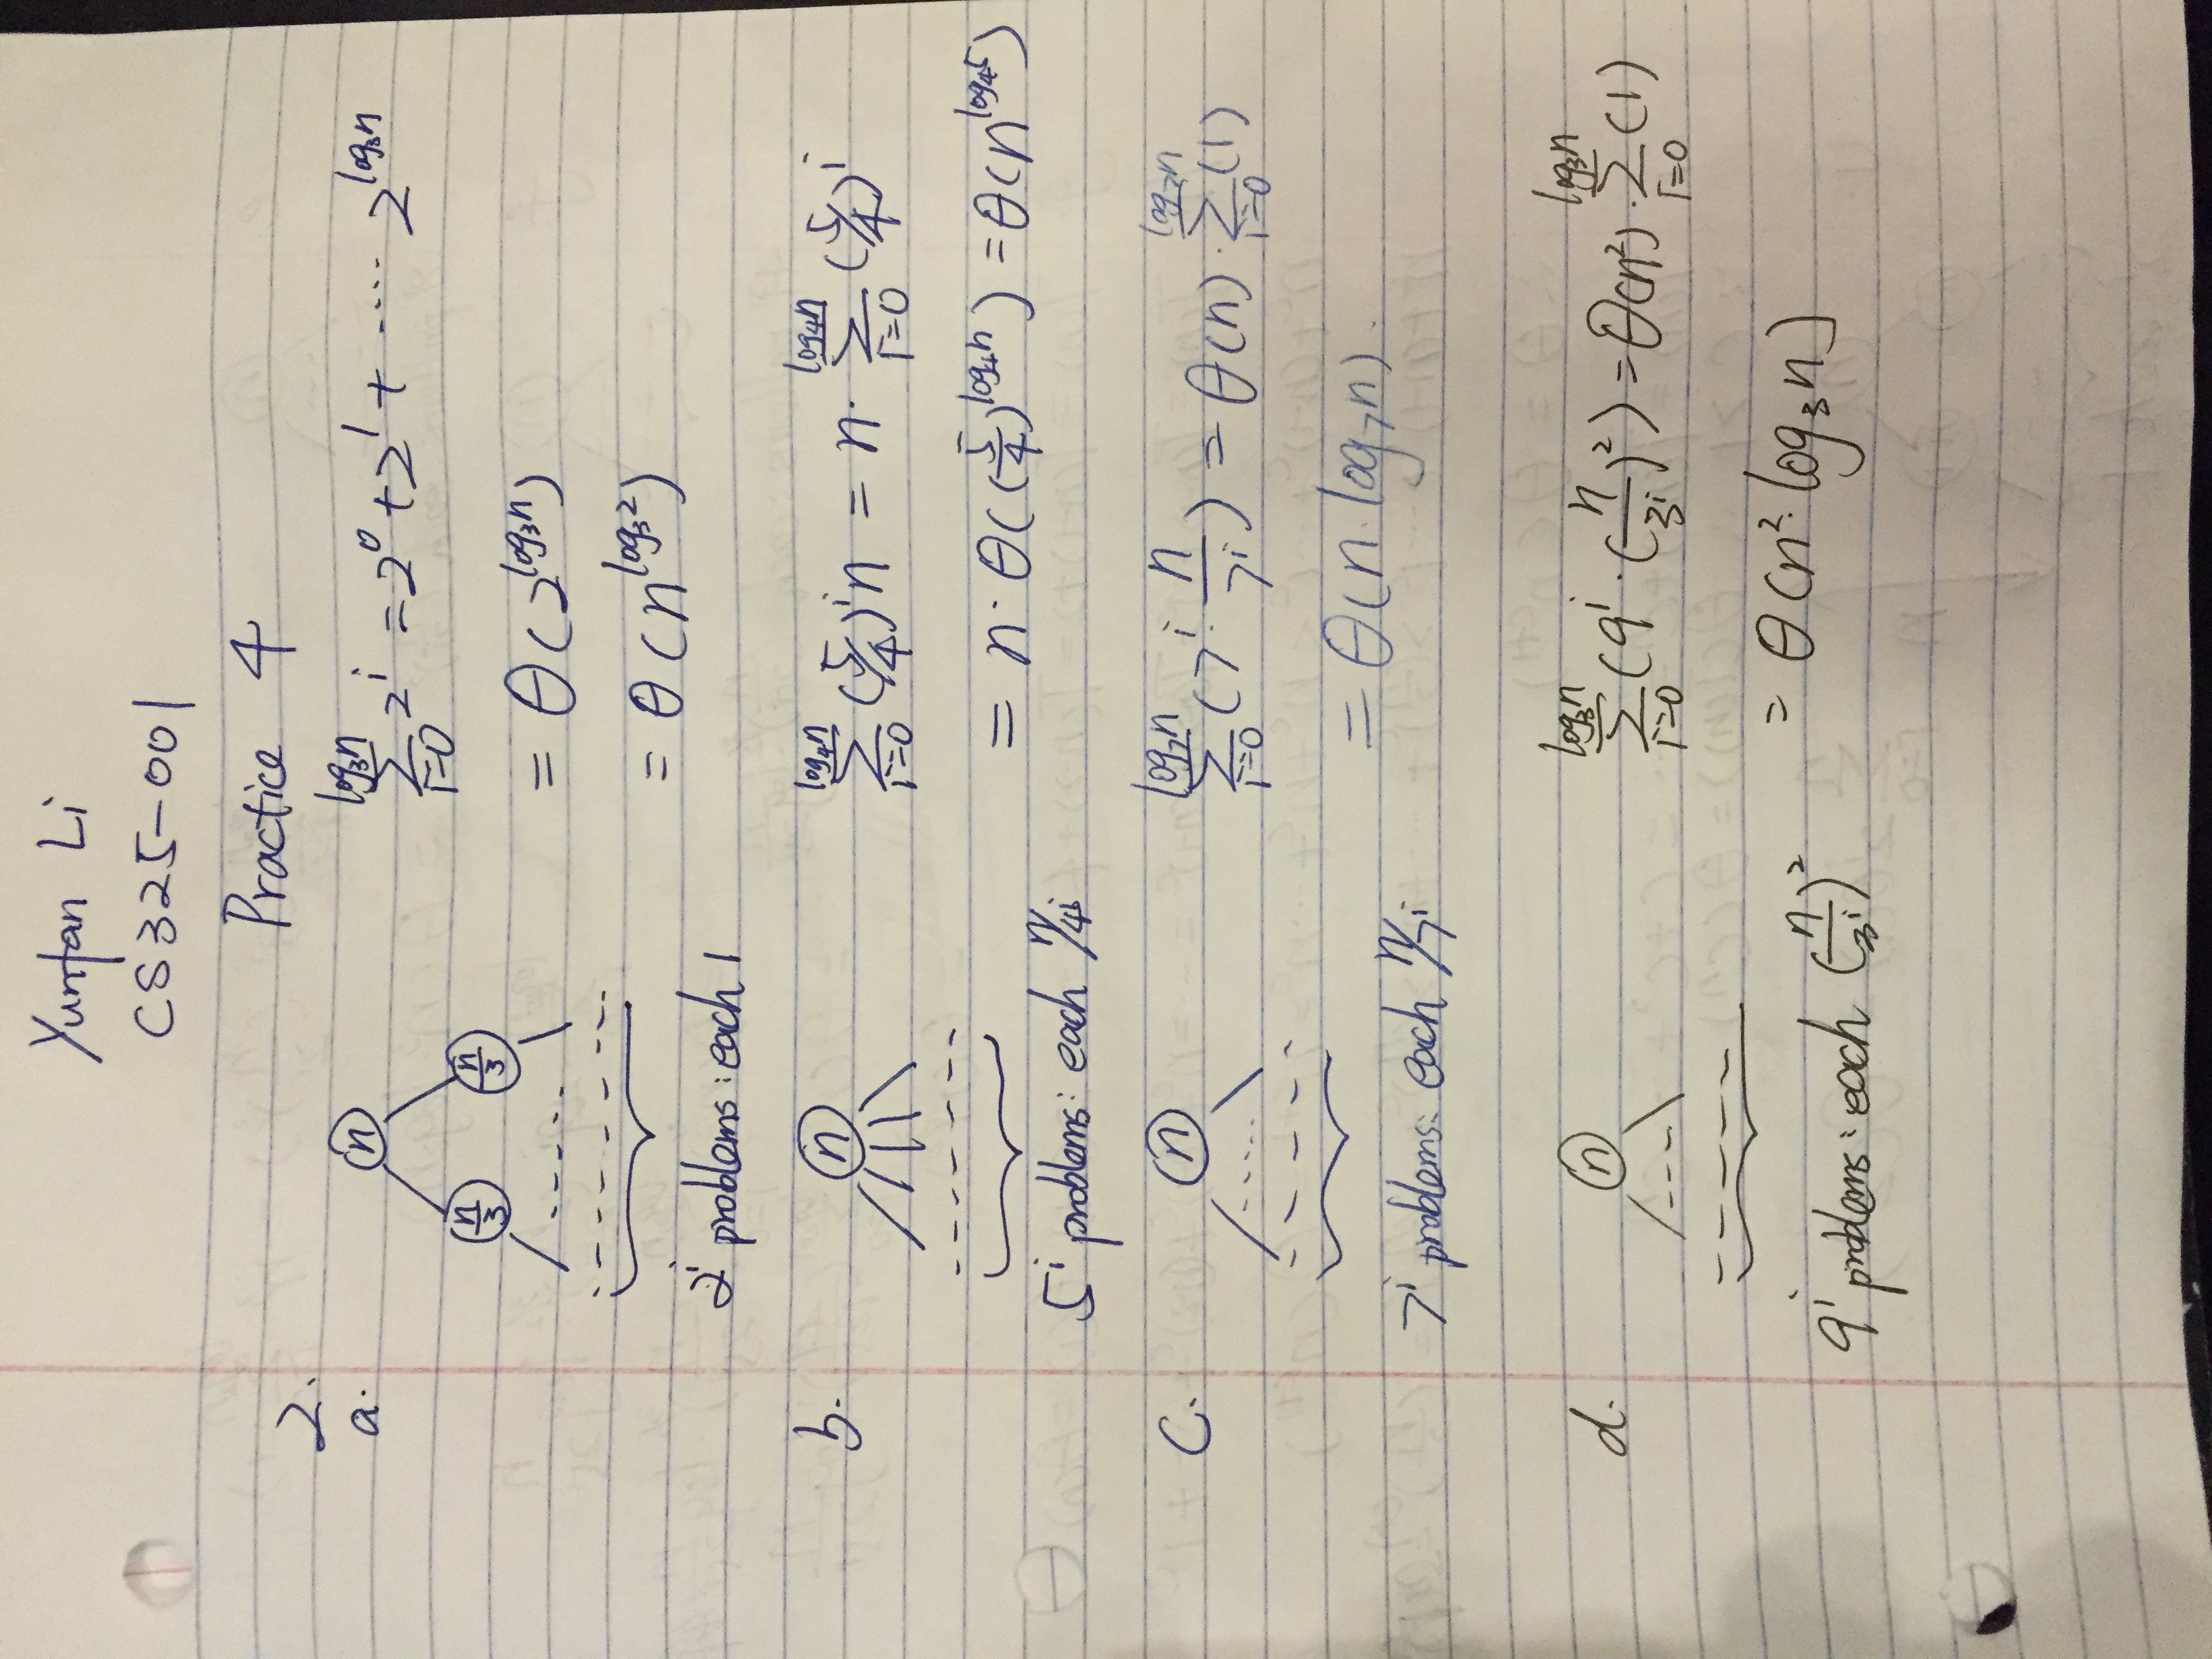 Yunfan Li
CS325-001
Practice 4
2.
a.
n
n/3 n/3
2^i problems: each 1
log₃n
∑ 2^i = 2^0 + 2^1 + ···· 2^(log₃n)
i=0
= θ(2^(log₃n))
= θ(n^(log₃2))
b.
n
5^i problems: each n/4^i
log₄n log₄n
∑ (5/4)^i n = n· ∑ (5/4)^i
i=0 i=0
= n· θ((5/4)^(log₄n)) = θ(n^(log₄5))
c.
n
7^i problems: each n/7^i
log₇n log₇n
∑ (7^i · n/7^i) = θ(n) · ∑ (1)
i=0 i=0
= θ(n·log₇n).
d.
n
9^i problems: each (n/3^i)²
log₃n log₃n
∑ (9^i · (n/3^i)²) = θ(n²) · ∑ (1)
i=0 i=0
= θ(n²·log₃n)